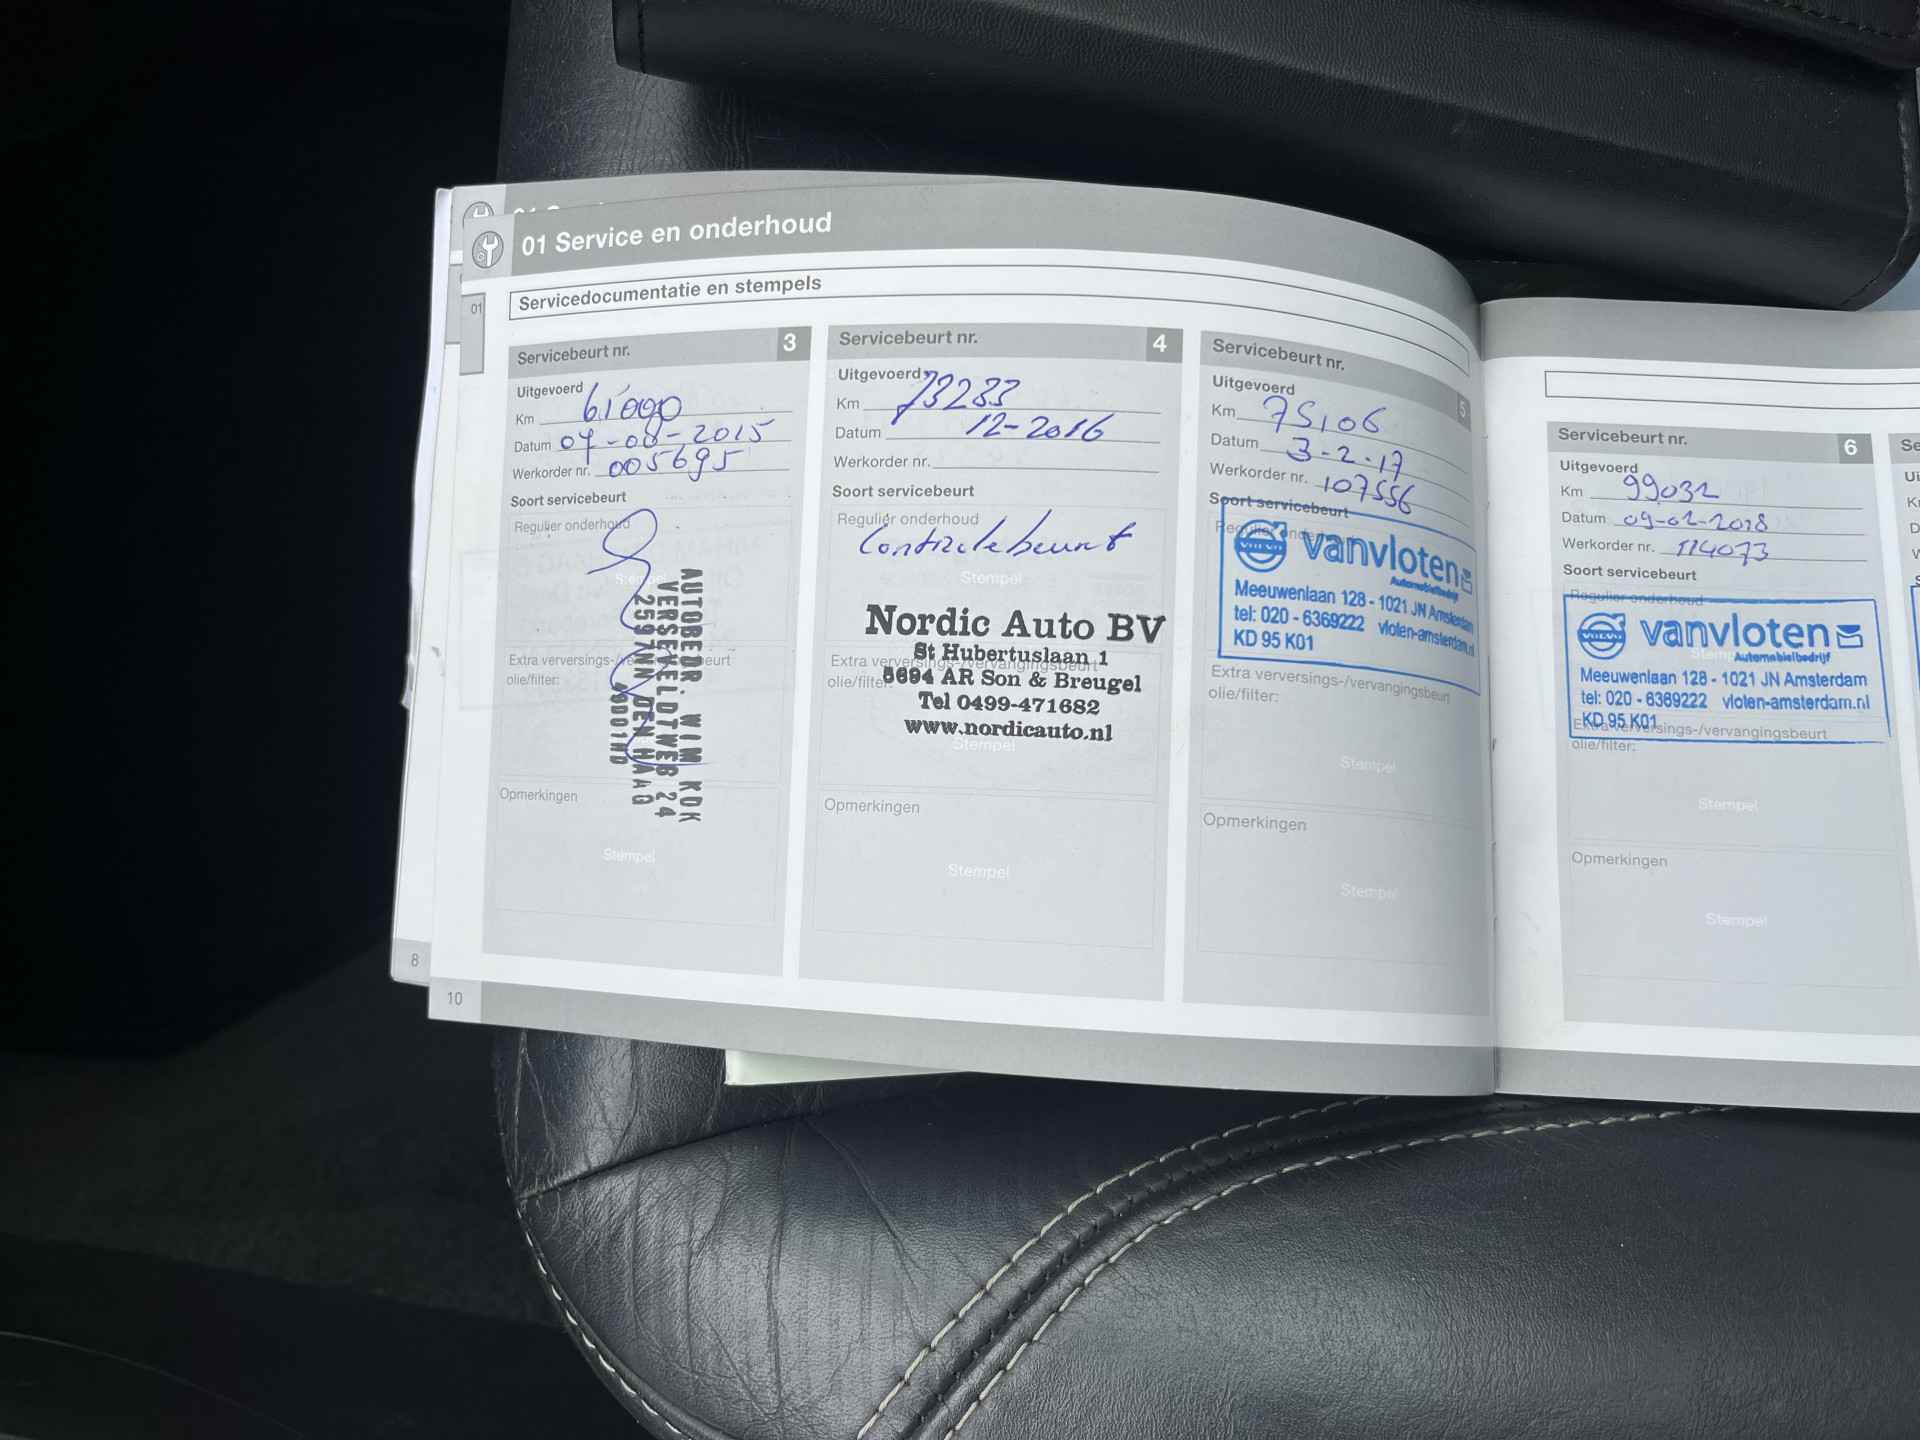 01 Service en onderhoud
01
Servicedocumentatie en stempels
Servicebeurt nr. 3
Uitgevoerd
Km 61000
Datum 04-08-2015
Werkorder nr. 005695
Soort servicebeurt
Regulier onderhoud
Stempel
AUTOBEDR. WIM KOK
VERSEVELDTWEG 24
2591 DEN HAAG
Extra verversings-/vervangingsbeurt
olie/filter:
Opmerkingen
Stempel
8
10
Servicebeurt nr. 4
Uitgevoerd
Km 73233
Datum 12-2016
Werkorder nr.
Soort servicebeurt
Regulier onderhoud
Controlebeurt
Stempel
Nordic Auto BV
St Hubertuslaan 1
5694 AR Son & Breugel
Tel 0499-471682
www.nordicauto.nl
Extra verversings-/vervangingsbeurt
olie/filter:
Stempel
Opmerkingen
Stempel
Servicebeurt nr. 5
Uitgevoerd
Km 75106
Datum 3-2-17
Werkorder nr. 107556
Soort servicebeurt
Regulier onderhoud
VOLVO vanvloten
Automobielbedrijf
Meeuwenlaan 128 - 1021 JN Amsterdam
tel: 020 - 6369222 vloten-amsterdam.nl
KD 95 K01
Extra verversings-/vervangingsbeurt
olie/filter:
Stempel
Opmerkingen
Stempel
Servicebeurt nr. 6
Uitgevoerd
Km 99032
Datum 09-02-2018
Werkorder nr. 114073
Soort servicebeurt
Regulier onderhoud
VOLVO vanvloten
Stempel
Automobielbedrijf
Meeuwenlaan 128 - 1021 JN Amsterdam
tel: 020 - 6369222 vloten-amsterdam.nl
KD 95 K01
Extra verversings-/vervangingsbeurt
olie/filter:
Stempel
Opmerkingen
Stempel